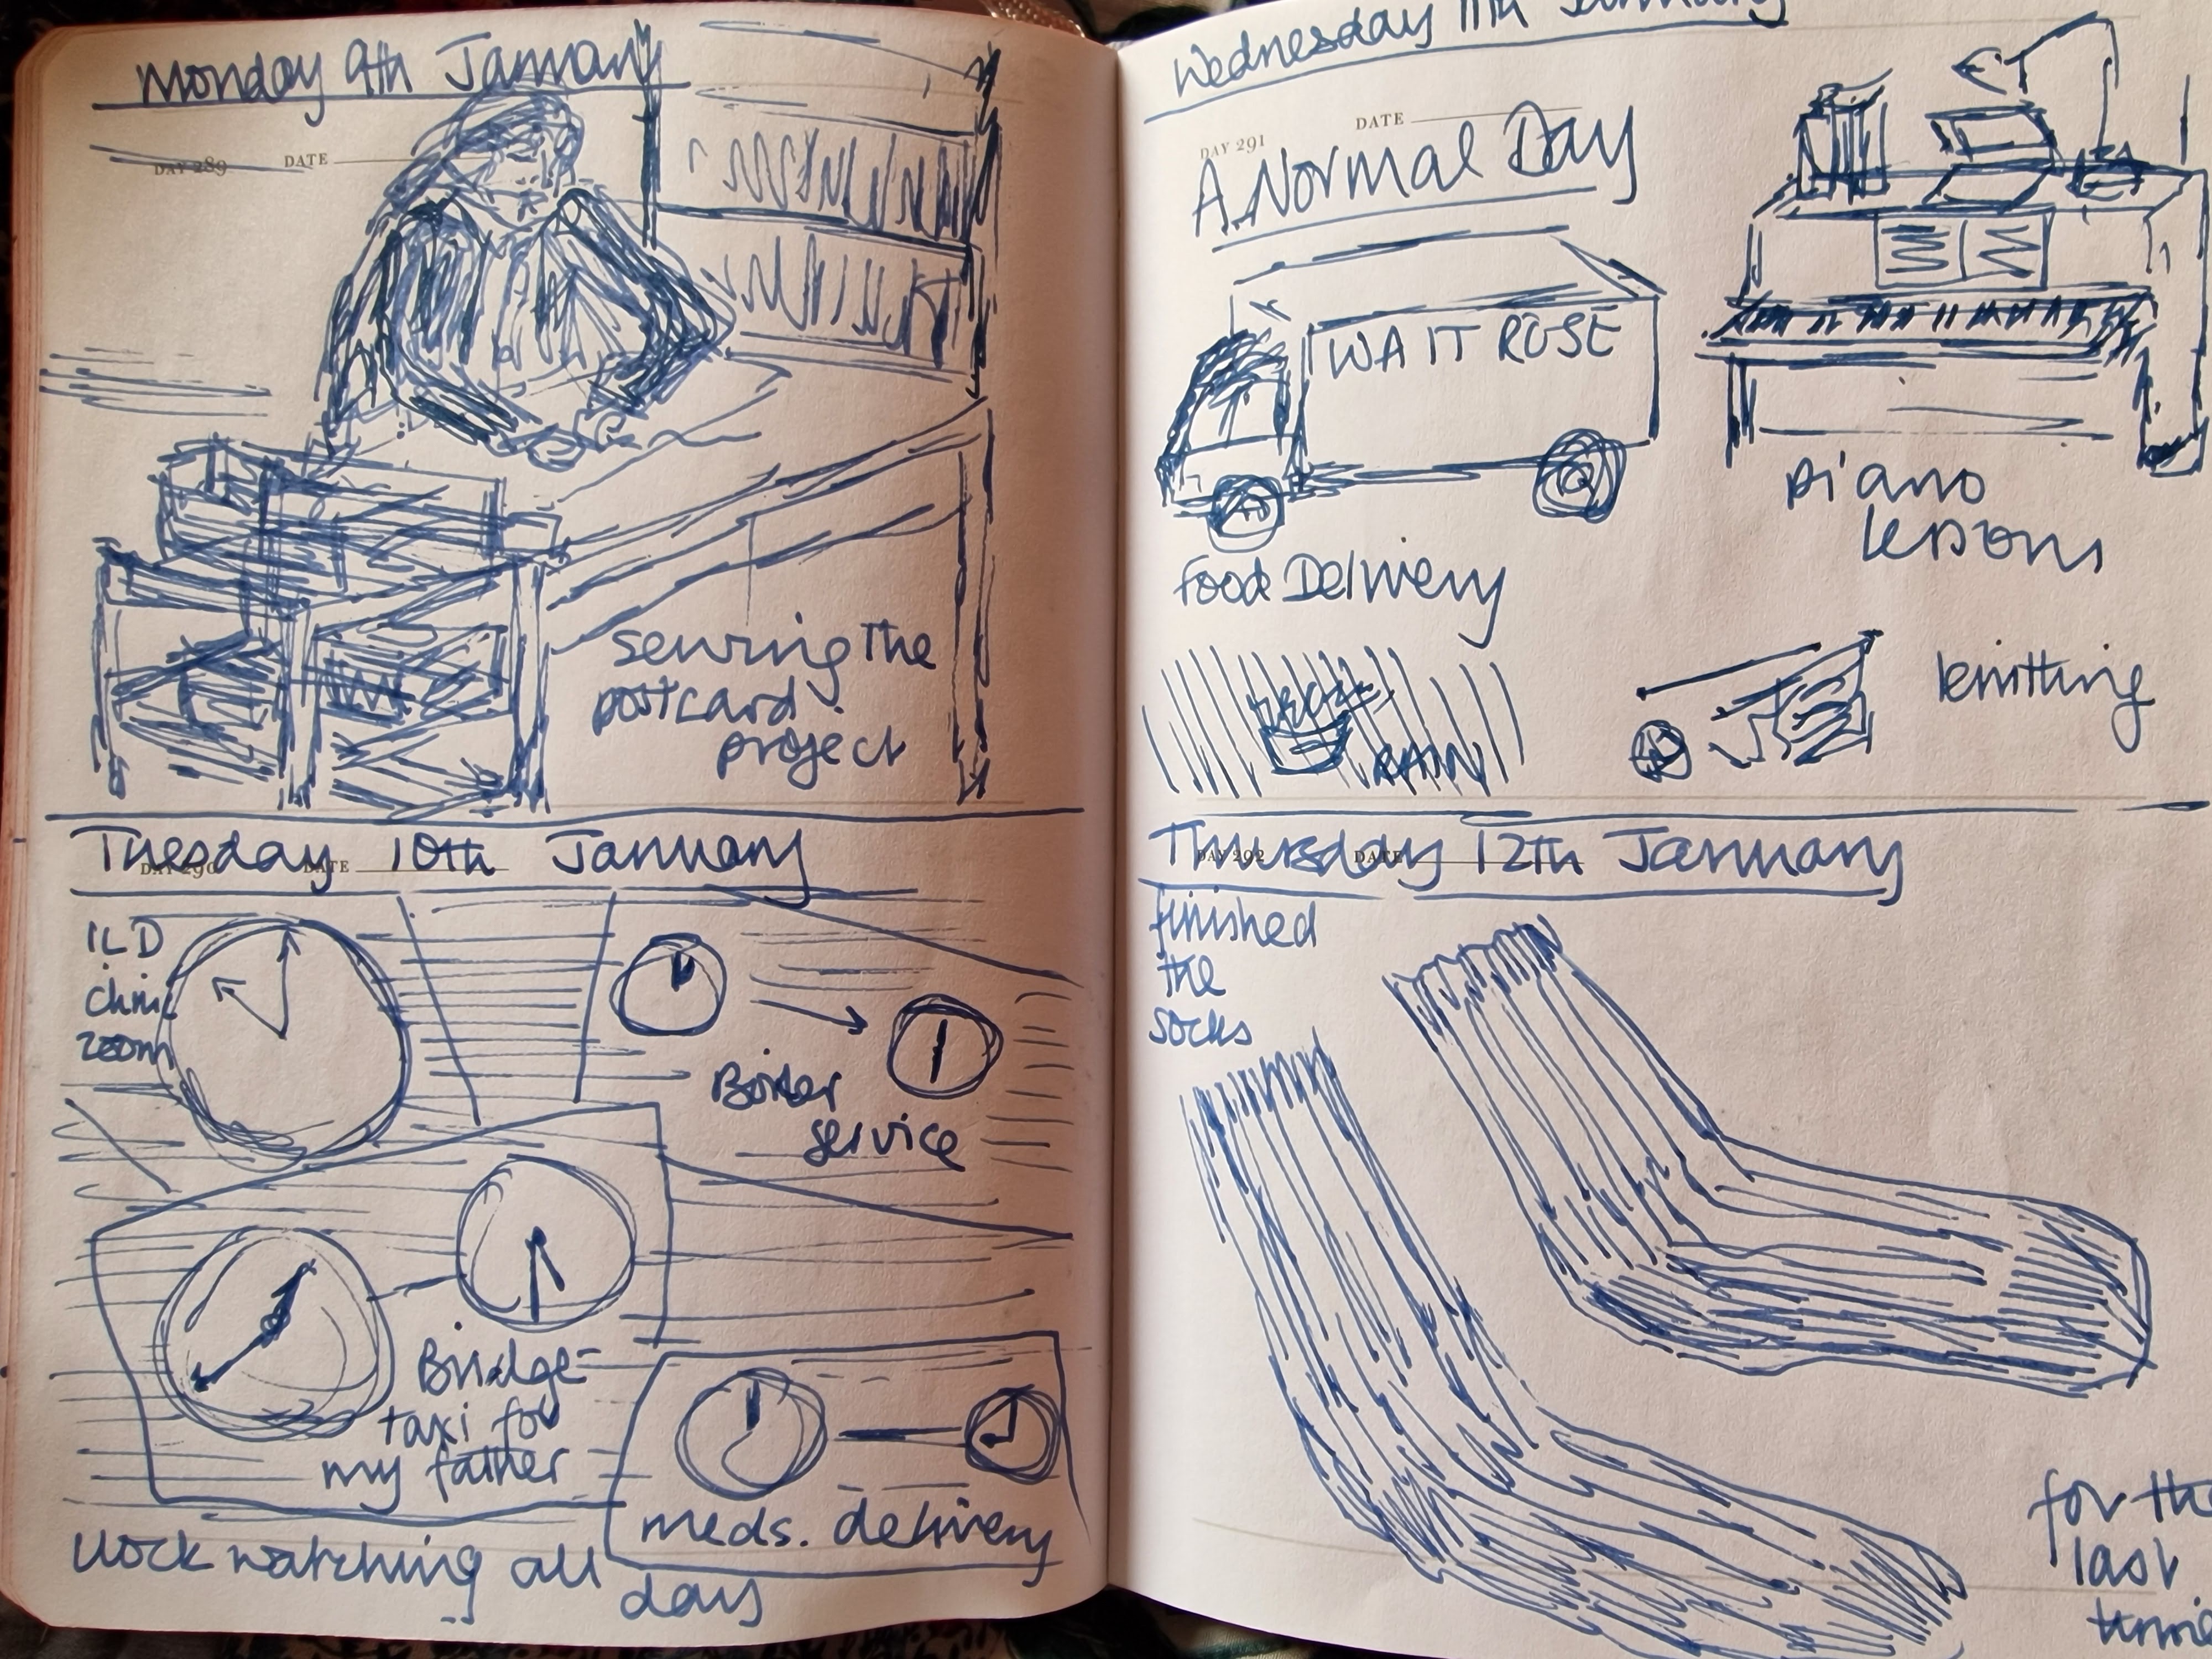 Monday 9th January
DAY 289 DATE
sewing the
postcard
project
Tuesday 10th January
DAY 290 DATE
ILD
clinic
zoom
Boiler
service
Bridge -
taxi for
my father
meds. delivery
clock watching all
day
Wednesday 11th January
DAY 291 DATE
A Normal Day
WAITROSE
piano
lessons
Food Delivery
RAIN
knitting
Thursday 12th January
DAY 292 DATE
finished
the
socks
for the
last
time